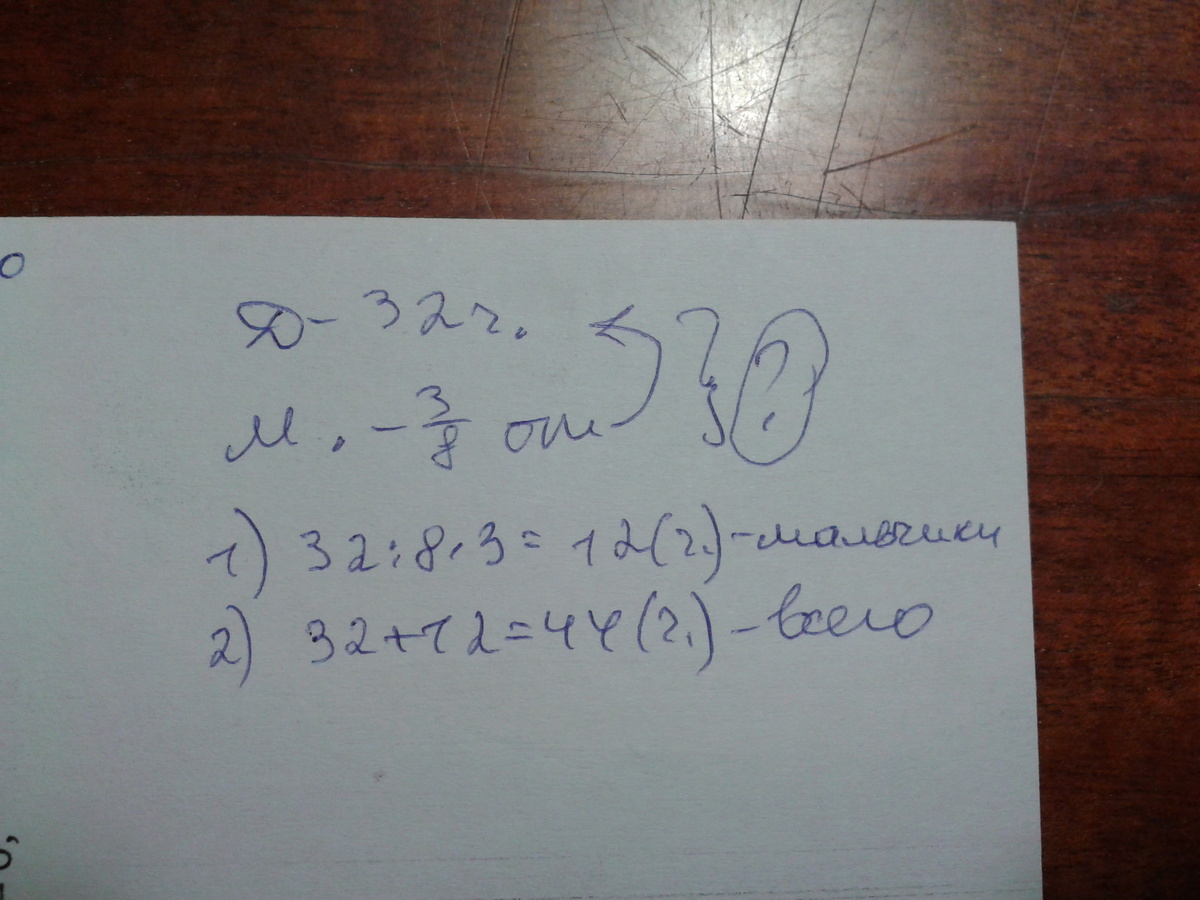 о
Д - 32 ч.
М. - 3/8 от } ?
1) 32:8·3= 12(ч.)-мальчики
2) 32+12=44(ч.)-всего